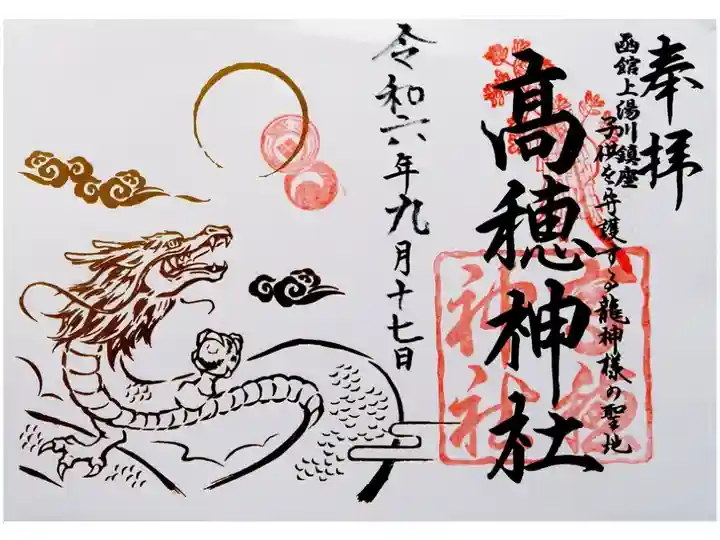 奉拝
函館上湯川鎮座
子供を守護する龍神様の聖地
髙穂神社
髙穂
神社
令和六年九月十七日